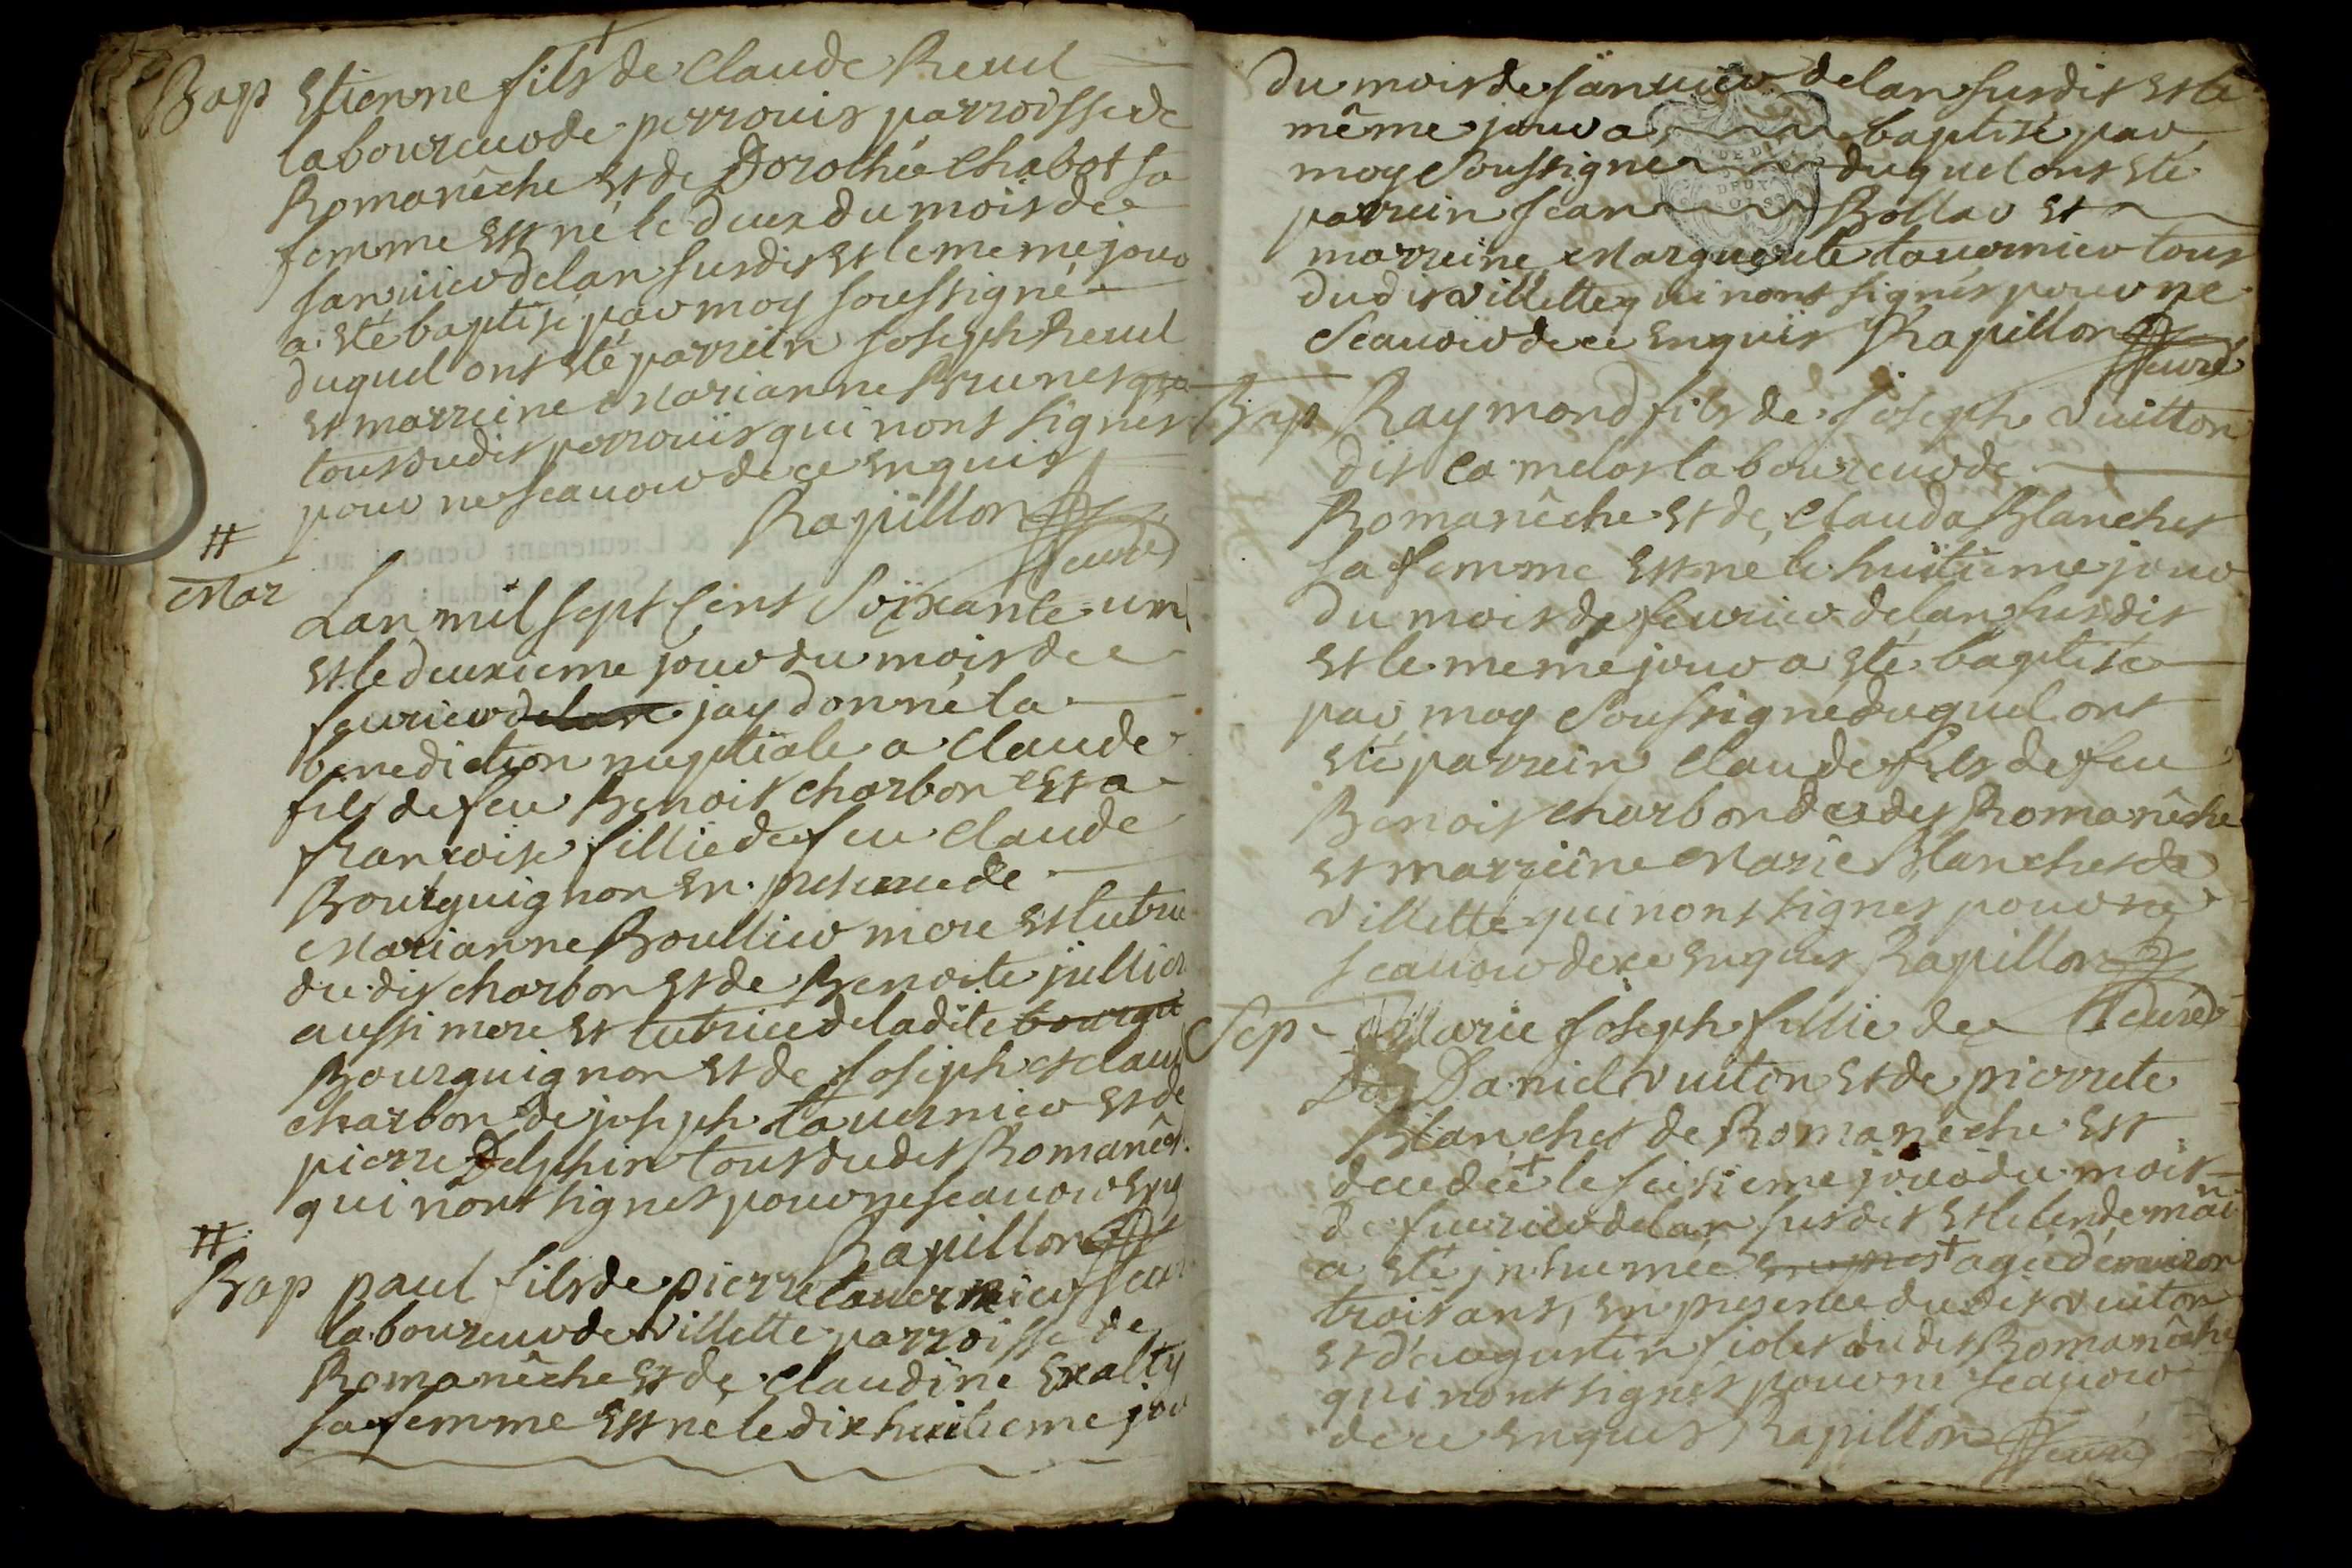 Bap Estienne fils de Claude Reud
laboureur de perrouis parroisse de
Romanêche et de Dorothée Chabot sa
femme est né le deux du mois de
januier de lan susdit et le meme jour
a esté baptisé par moy soussigné
duquel ont esté parrein Joseph Reud
et marreine Marianne Brunet
tous dudit perrouis qui nont signés
pour ne scauoir de ce enquis
Rapillon curé
#
Mar Lan mil sept cent soixante-un
et le deuxieme jour du mois de
feurier delan jay donné la
benediction nuptiale a Claude
fils de feu Benoit charbon et a
francoise fillie de feu Claude
Bourguignon en presence de
Marianne Boullier mere et tutrice
du dit charbon et de Benoite jullier
aussi mere et tutrice de ladite bourgu
Bourguignon et de Joseph et claude
charbon de joseph tauernier et de
pierre Delphin tous du dit Romanêch
qui nont signes pour ne scauoir enq
Rapillon cur
#
Bap paul fils de pierre tauernier
laboureur de Villette parroisse de
Romanêche et de Claudine Exalty
sa femme est né le dix huitieme jour
du mois de januier de lan susdit et le
même jour a baptisé par
moy soussigné duquel ont esté
parrein Jean Bollar et
marreine Marguerite tauernier tous
dudit Villette qui nont signés pour ne
scauoir de ce enquis Rapillon curé
Bap Raymond fils de Joseph Vuitton
dit la melos laboureur de
Romanêche et de Clauda Blanchet
sa femme est né le huitieme jour
du mois de feurier de lan susdit
et le meme jour a esté baptisé
par moy soussigné duquel ont
esté parrein Claude fils de feu
Benoit charbon dudit Romanêche
et marreine Marie Blanchet de
Villette qui nont signes pour ne
scauoir de ce enquis Rapillon curé
Sep Marie Joseph fillie de
Daniel Vuiton et de pierrete
Blanchet de Romanêche est
decedée + le seisieme jour du mois
de feurier de lan susdit et le lendemain
a esté jnhumée + agée denuiron
trois ans, en presence dudit Vuiton
et daugustin fiolet dudit Romanêche
qui nont signés pour ne scauoir
de ce enquis Rapillon curé